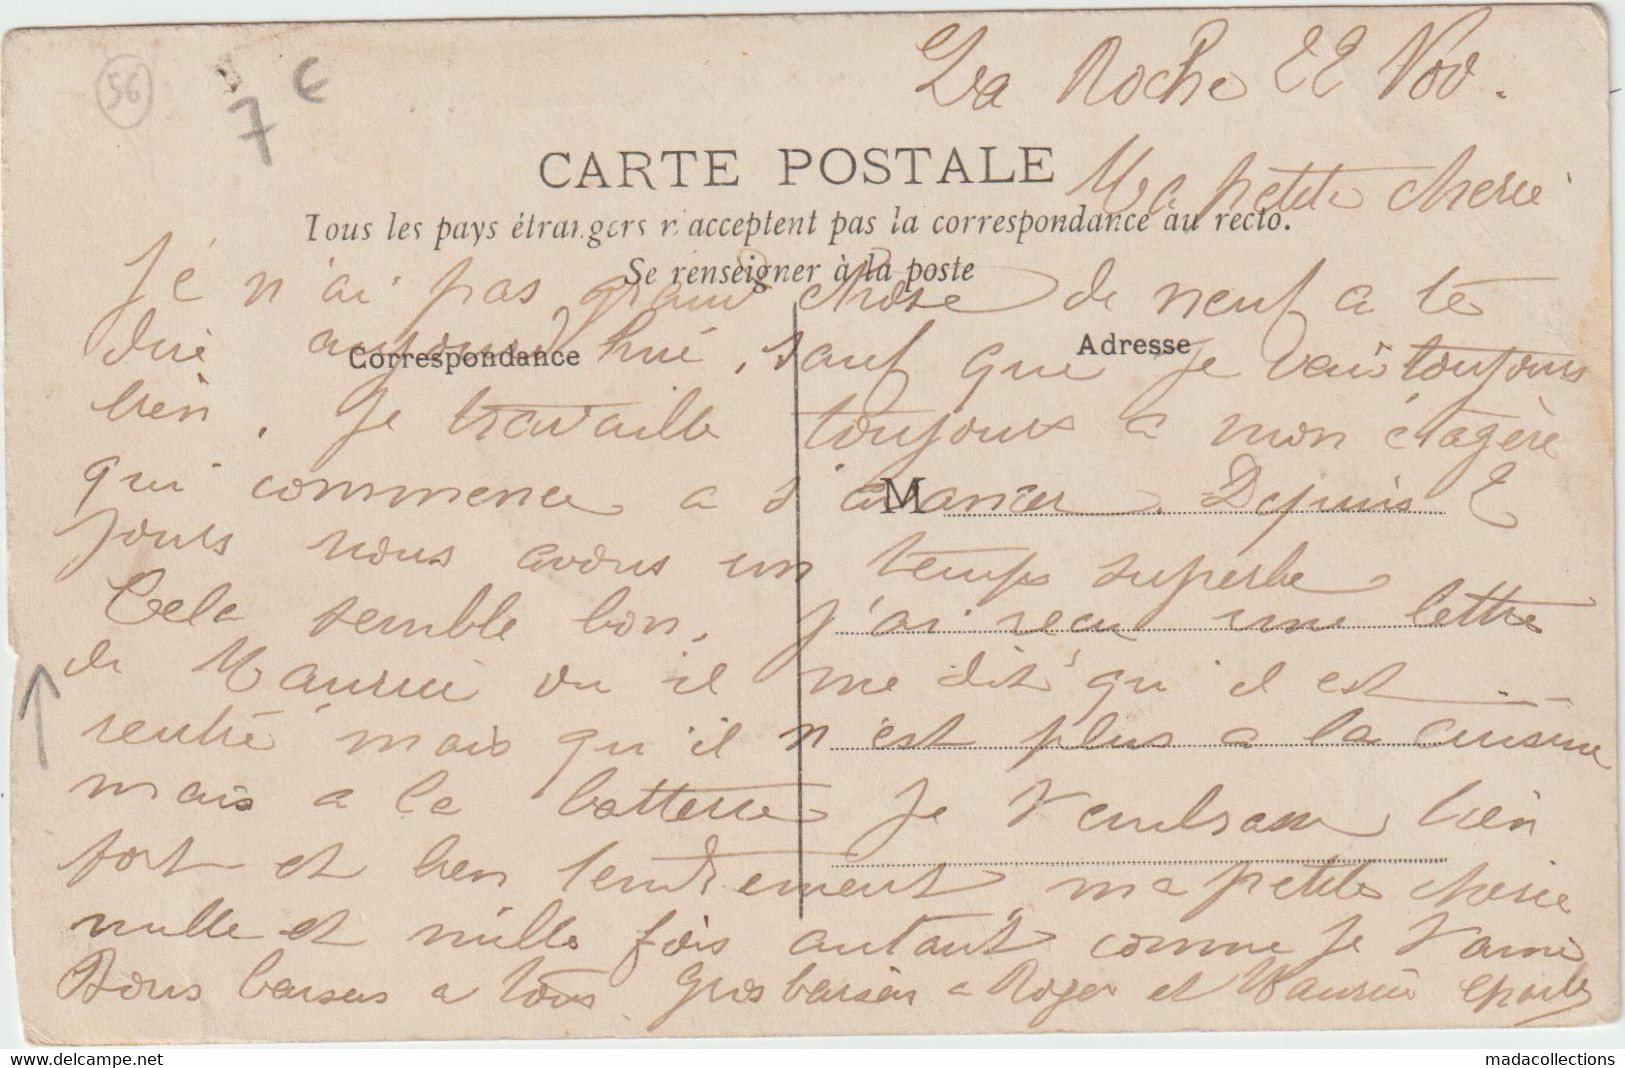 56
7 €
La Roche 22 Nov.
CARTE POSTALE
Ma petite cherie
Tous les pays étrangers n'acceptent pas la correspondance au recto.
Se renseigner à la poste
Je n'ai pas grand chose de neuf a te
Correspondance
Adresse
dire aujourd'hui, sauf que je vais toujours
bien. Je travaille toujours a mon étagère
M
qui commence a s'avancer. Depuis 2
jours nous avons un temps superbe
Cela semble bon. J'ai reçu une lettre
de Maurice ou il me dit qu'il est
rentré mais qu'il n'est plus a la cuisine
mais a la batterie Je t'embrasse bien
fort et bien tendrement ma petite cherie
mille et mille fois autant comme je t'aime
Bons baisers a tous Gros baisers a Roger et Maurice
madacollections